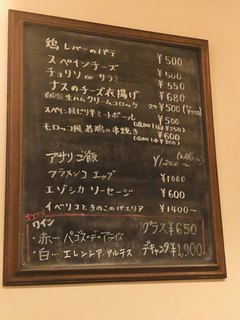 鶏レバーのパテ ¥500
スペインチーズ ¥500
チョリソ or サラミ ¥550
ナスのチーズ衣揚げ ¥680
自家製 生ハムクリームコロッケ 2ケ ¥500
スペイン風ピリ辛ミートボール ¥500
モロッコ風 若鶏の串焼き ¥600
アサリご飯 ¥1,200〜
フラメンコエッグ ¥1000
エゾシカ ソーセージ ¥600
イベリコときのこのパエリア ¥1400〜
ワイン グラス ¥650
赤… パゴス・デ・アライス デキャンタ ¥1,900
白… エレンシア アルテス